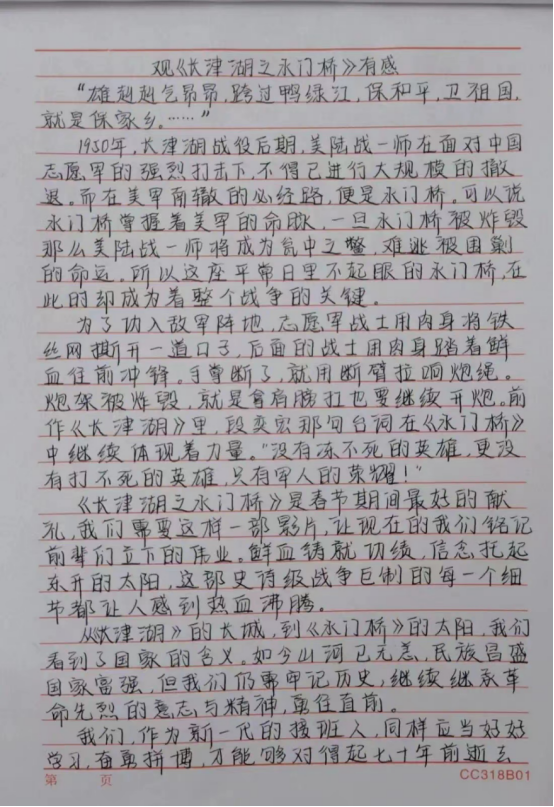 观《长津湖之水门桥》有感
“雄赳赳气昂昂，跨过鸭绿江，保和平，卫祖国，
就是保家乡。……”
1950年，长津湖战役后期，美陆战一师在面对中国
志愿军的强烈打击下，不得已进行大规模的撤
退。而在美军南辙的必经路，便是水门桥。可以说
水门桥掌握着美军的命脉，一旦水门桥被炸毁
那么美陆战一师将成为瓮中之鳖，难逃被围剿
的命运。所以这座平常日里不起眼的水门桥，在
此时却成为着整个战争的关键。
为了攻入敌军阵地，志愿军战士用肉身将铁
丝网撕开一道口子，后面的战士用肉身踏着鲜
血往前冲锋。手臂断了，就用断臂拉响炮绳。
炮架被炸毁，就是拿肩膀扛也要继续开炮。前
作《长津湖》里，段奕宏那句台词在《水门桥》
中继续体现着力量。“没有冻不死的英雄，更没
有打不死的英雄，只有军人的荣耀！”
《长津湖之水门桥》是春节期间最好的献
礼，我们需要这样一部影片，让现在的我们铭记
前辈们立下的伟业。鲜血铸就功绩，信念托起
东升的太阳，这部史诗级战争巨制的每一个细
节都让人感到热血沸腾。
从《长津湖》的长城，到《水门桥》的太阳，我们
看到了国家的含义。如今山河已无恙，民族昌盛
国家富强，但我们仍需牢记历史，继续继承革
命先烈的意志与精神，勇往直前。
我们，作为新一代的接班人，同样应当好好
学习，奋勇拼搏，才能够对得起七十年前逝去
第 页 CC318B01